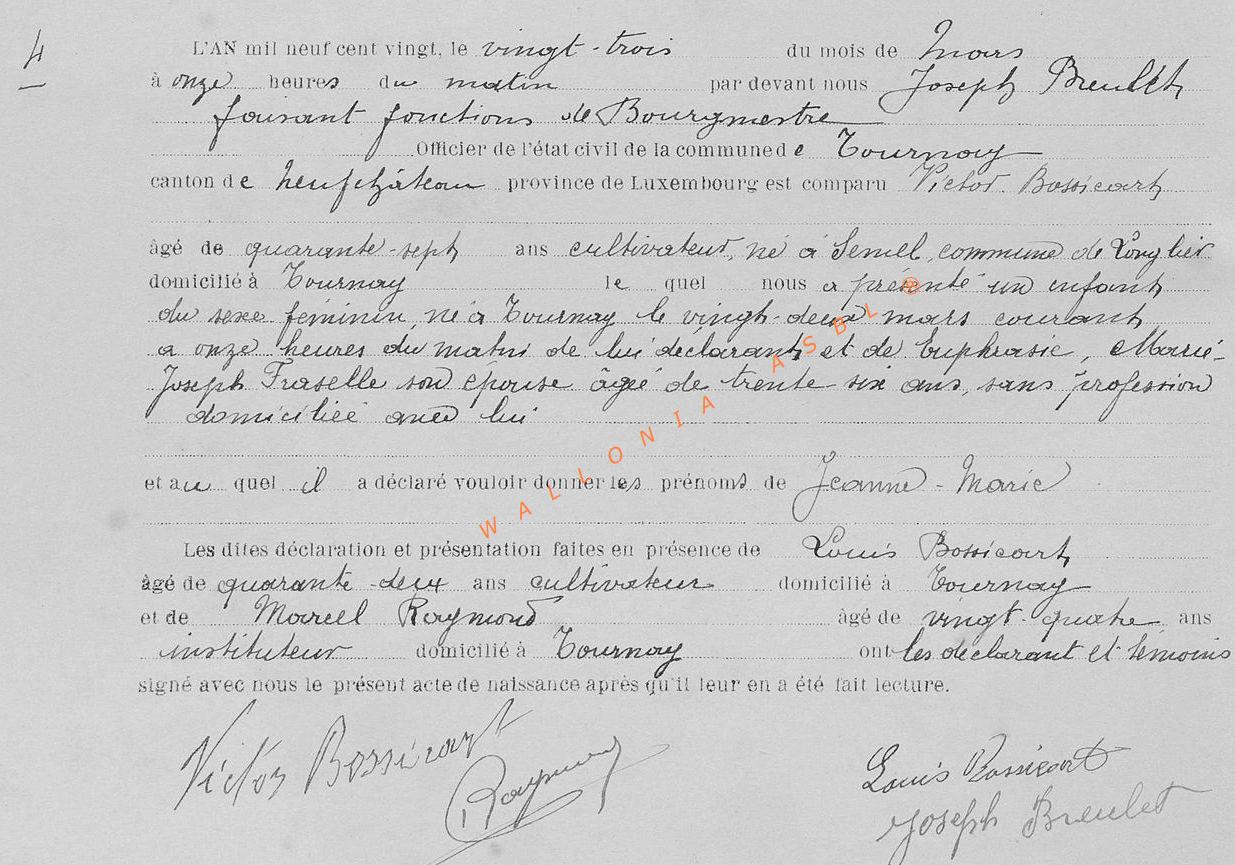 4
L'AN mil neuf cent vingt, le vingt-trois du mois de Mars
à onze heures du matin par devant nous Joseph Breulet,
faisant fonctions de Bourgmestre
Officier de l'état civil de la commune de Tournay
canton de Neufchâteau province de Luxembourg est comparu Victor Bossicart,
âgé de quarante-sept ans cultivateur, né à Semel, commune de Longlier
domicilié à Tournay le quel nous a présenté un enfant
du sexe féminin, né à Tournay le vingt-deux mars courant
a onze heures du matin de lui déclarant, et de Euphrasie, Marie-
Joseph Fraselle son épouse âgée de trente-six ans, sans profession
domiciliée avec lui
et au quel il a déclaré vouloir donner les prénoms de Jeanne-Marie
Les dites déclaration et présentation faites en présence de Louis Bossicart,
âgé de quarante-deux ans cultivateur domicilié à Tournay
et de Marcel Raymond âgé de vingt-quatre ans
instituteur domicilié à Tournay ont les déclarant et témoins
signé avec nous le présent acte de naissance après qu'il leur en a été fait lecture.
Victor Bossicart
Raymond
Louis Bossicart
Joseph Breulet
WALLONIA ASBL ®